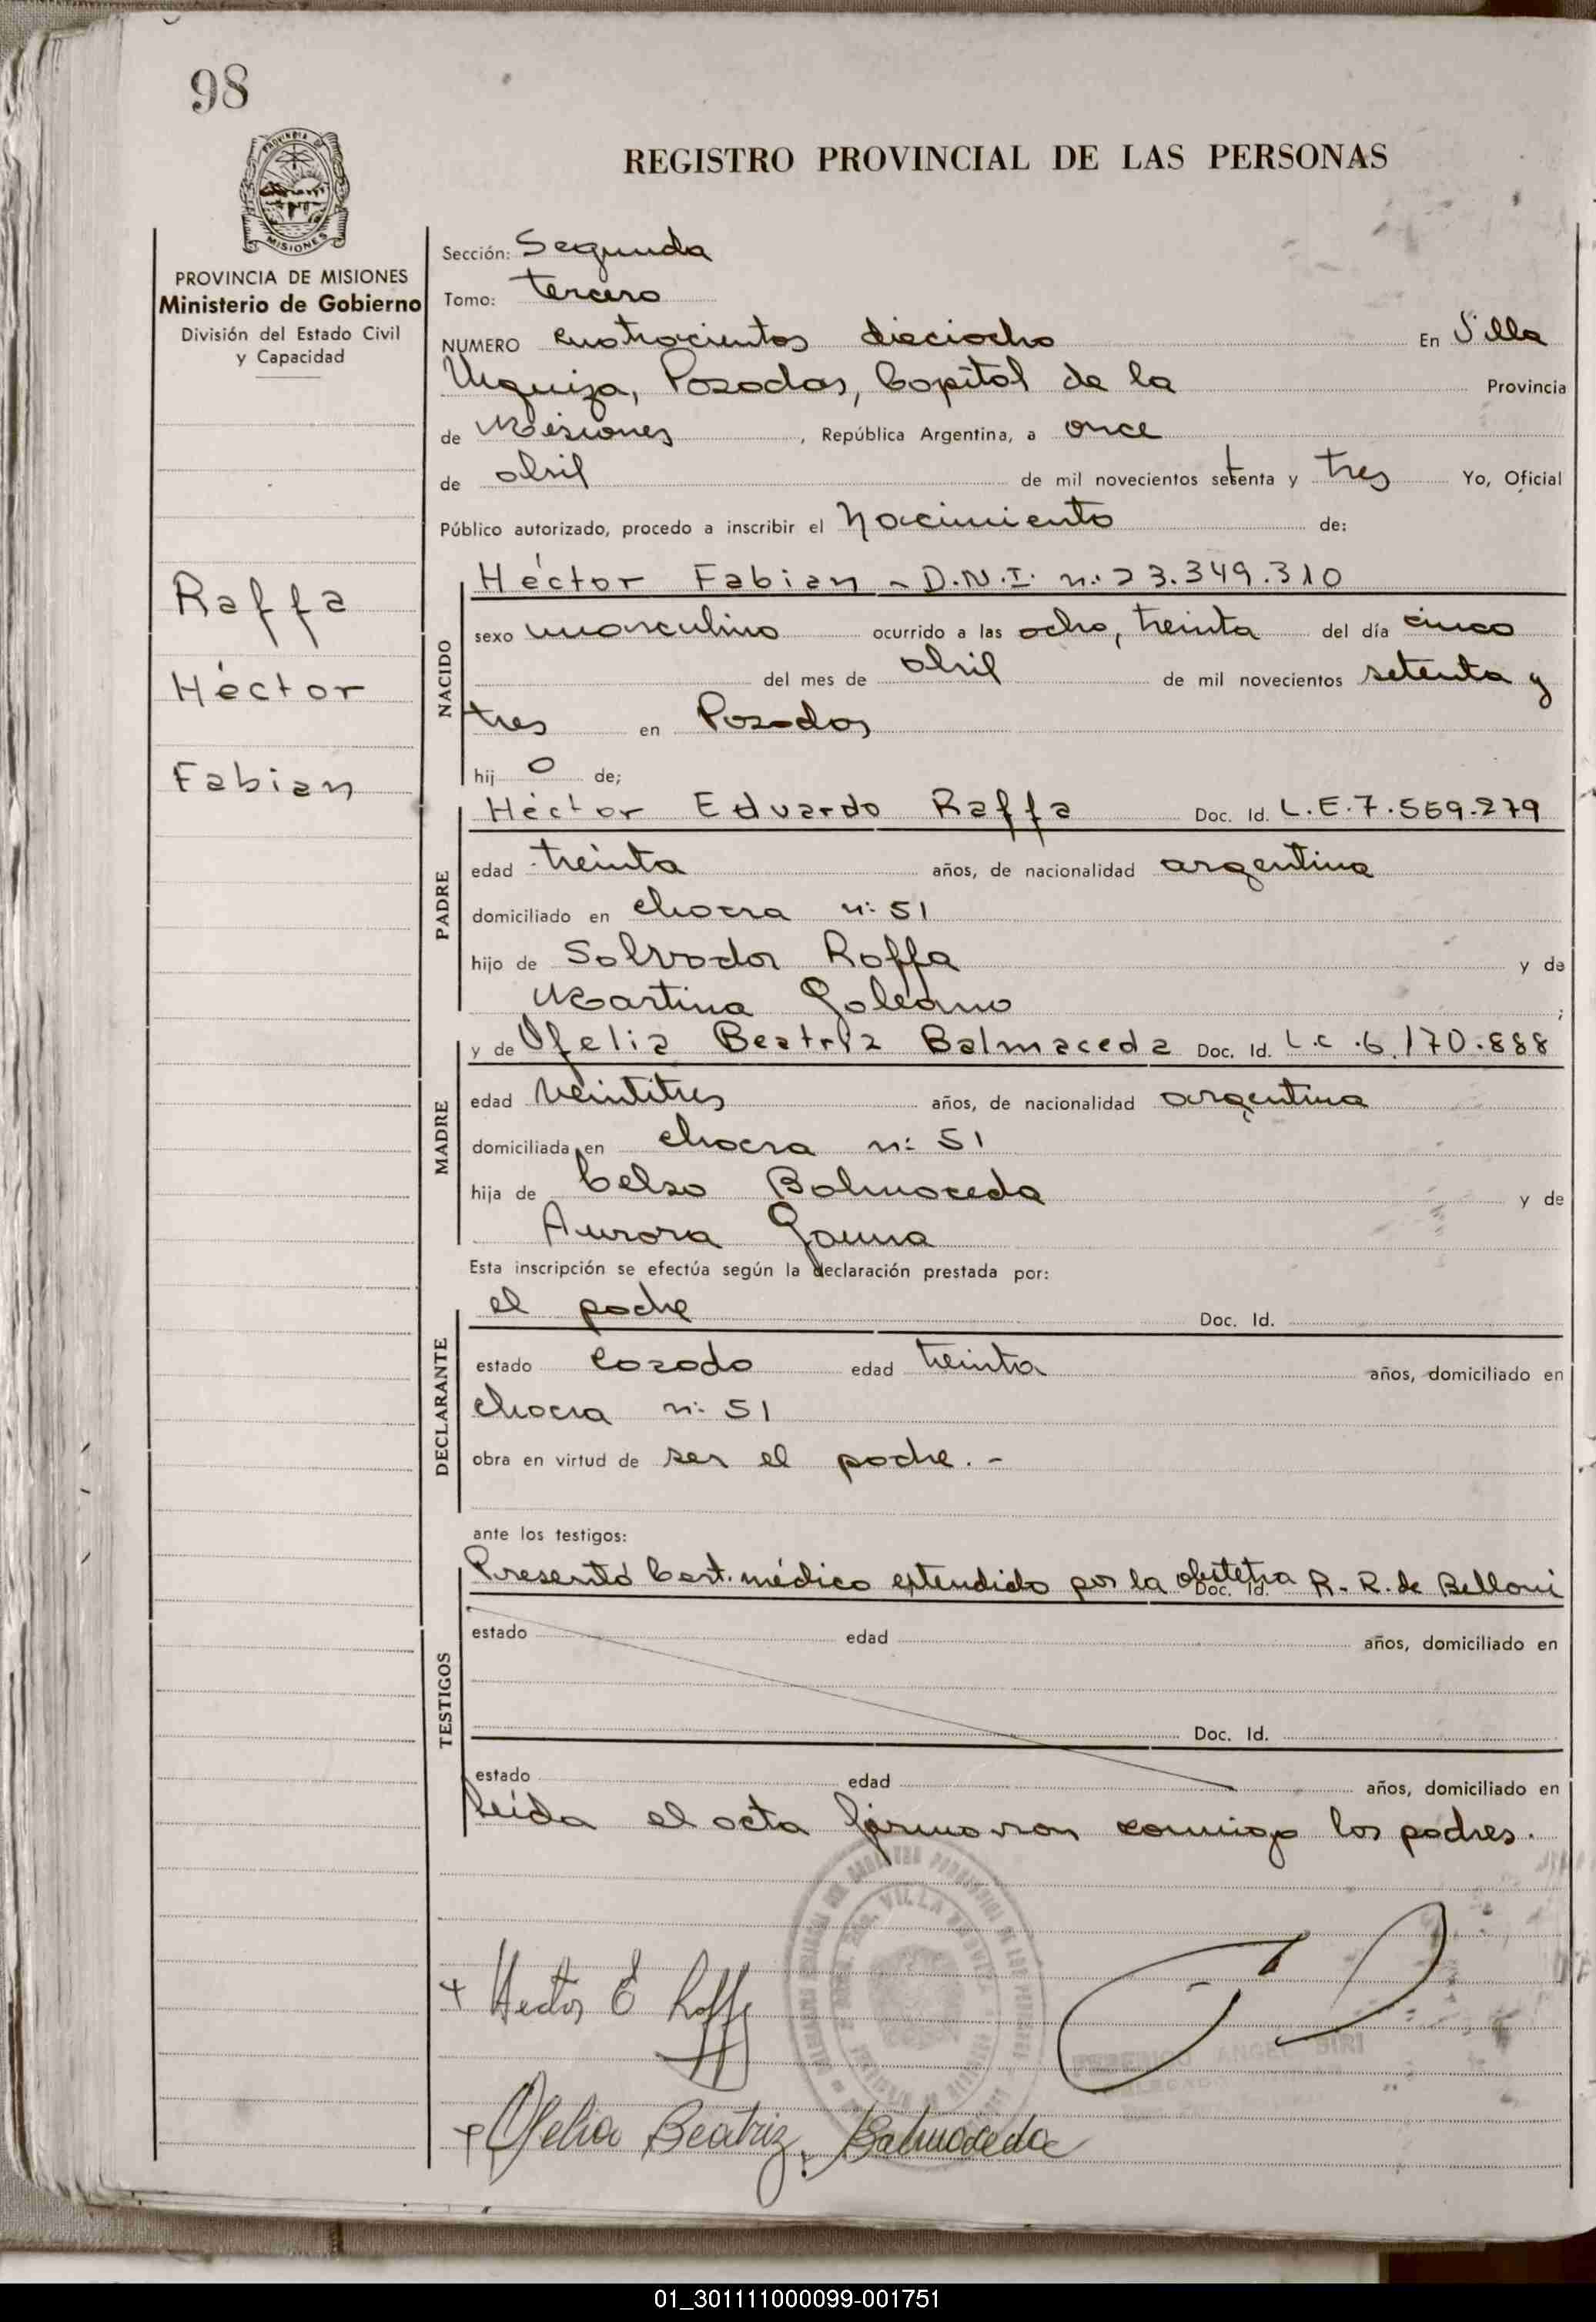 98
PROVINCIA DE
MISIONES
REGISTRO PROVINCIAL DE LAS PERSONAS
PROVINCIA DE MISIONES
Ministerio de Gobierno
División del Estado Civil
y Capacidad
Raffa
Héctor
Fabian
Sección: Segunda
Tomo: tercero
NUMERO cuatrocientos dieciocho En Villa
Urquiza, Posadas, Capital de la Provincia
de Misiones, República Argentina, a once
de abril de mil novecientos setenta y tres Yo, Oficial
Público autorizado, procedo a inscribir el Nacimiento de:
NACIDO
Héctor Fabian - D.N.I. n: 23.349.310
sexo masculino ocurrido a las ocho, treinta del día cinco
del mes de abril de mil novecientos setenta y
tres en Posadas
hij o de;
PADRE
Héctor Eduardo Raffa Doc. Id. L.E. 7.569.279
edad treinta años, de nacionalidad argentina
domiciliado en chacra n: 51
hijo de Salvador Raffa y de
Martina Galeano ;
MADRE
y de Ofelia Beatriz Balmaceda Doc. Id. L.C. 6.170.888
edad veintitres años, de nacionalidad argentina
domiciliada en chacra n: 51
hija de Celso Balmaceda y de
Aurora Gauna
Esta inscripción se efectúa según la declaración prestada por:
DECLARANTE
el padre Doc. Id.
estado casado edad treinta años, domiciliado en
chacra n: 51
obra en virtud de ser el padre. -
ante los testigos:
TESTIGOS
Presentó Cert. médico extendido por la obstetra Doc. Id. R. R. de Belloni
estado edad años, domiciliado en
Doc. Id.
estado edad años, domiciliado en
Leída el acta firmaron conmigo los padres.
Hector E Raffa
FEDERICO ANGEL SIRI
Ofelia Beatriz Balmaceda
01_301111000099-001751